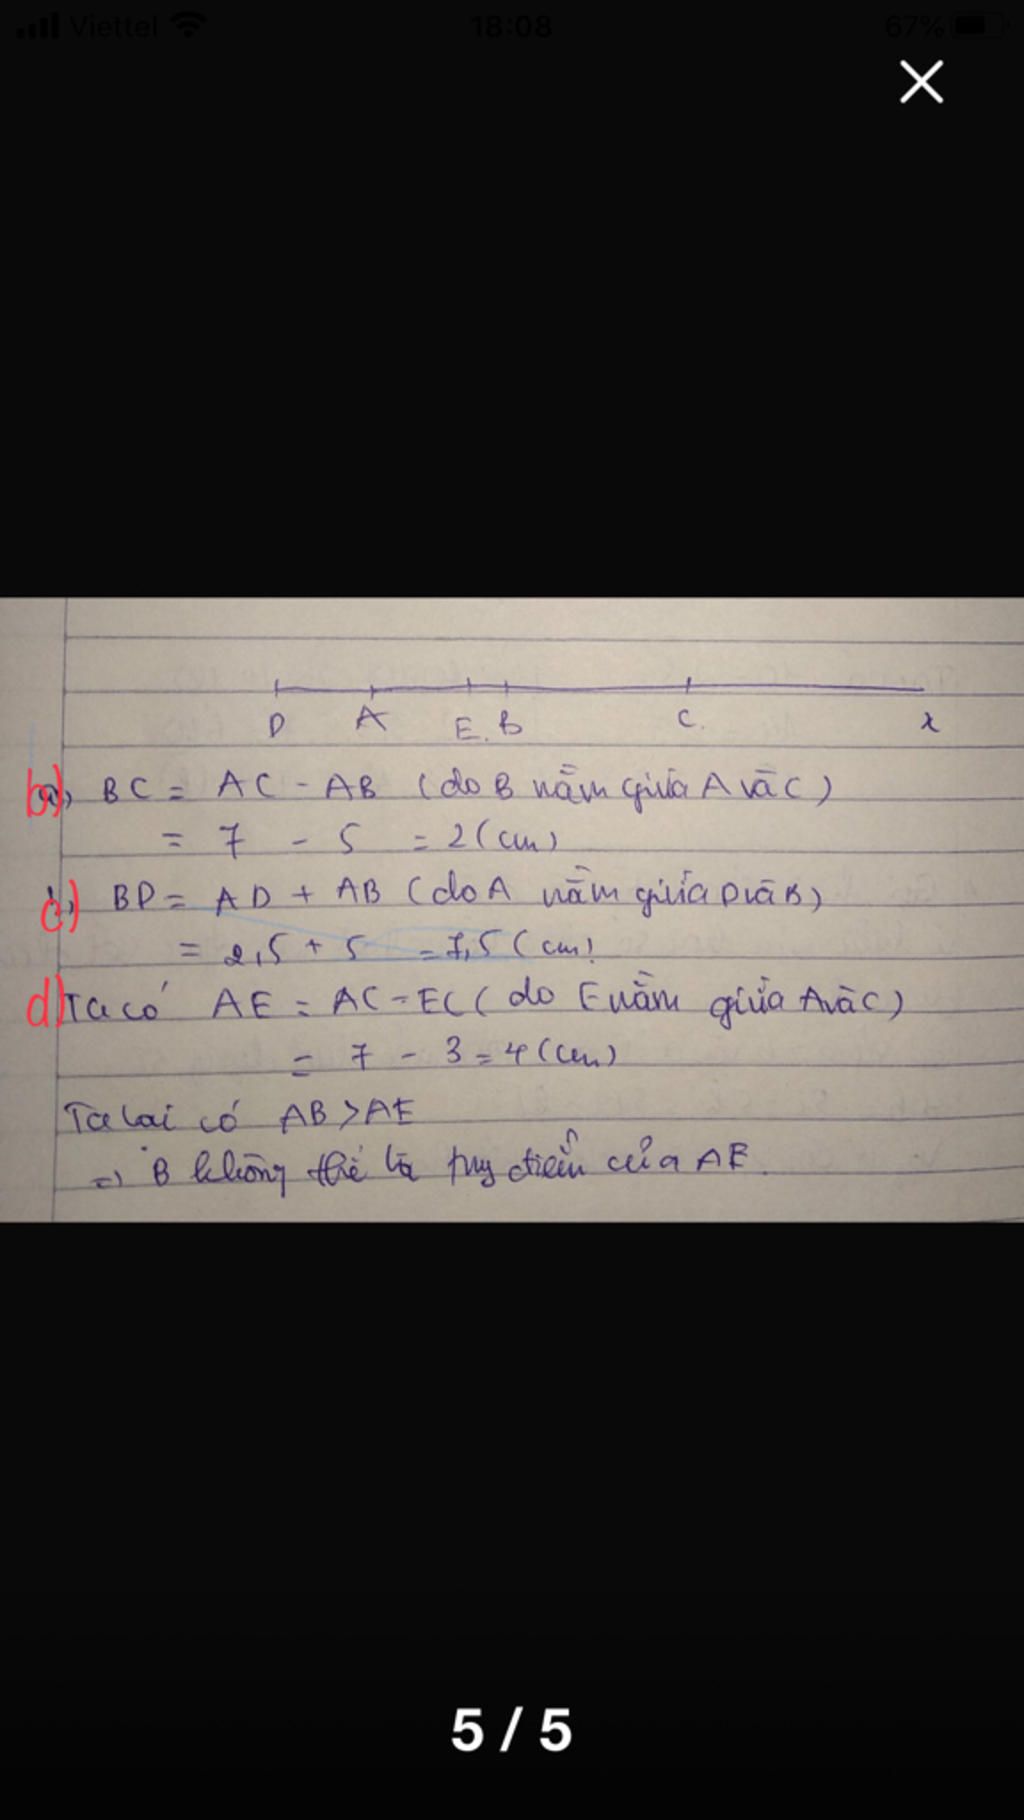 Viettel 18:08 67%
D A E. B C. x
b) BC = AC - AB (do B nằm giữa A và C)
= 7 - 5 = 2 (cm)
c) BD = AD + AB (do A nằm giữa D và B)
= 2,5 + 5 = 7,5 (cm)
d) Ta có AE = AC - EC (do E nằm giữa A và C)
= 7 - 3 = 4 (cm)
Ta lại có AB > AE
=) B không thể là điểm của AE.
5 / 5